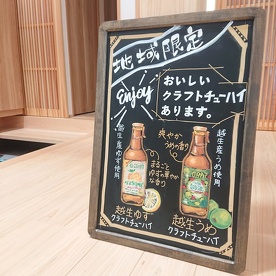 地域限定
Enjoy
おいしい
クラフトチューハイ
あります。
越生産ゆず使用
爽やか
うめの香り
越生産うめ使用
まるごと
ゆずの華やか
な香り
越生ゆず
クラフトチューハイ
越生うめ
クラフトチューハイ